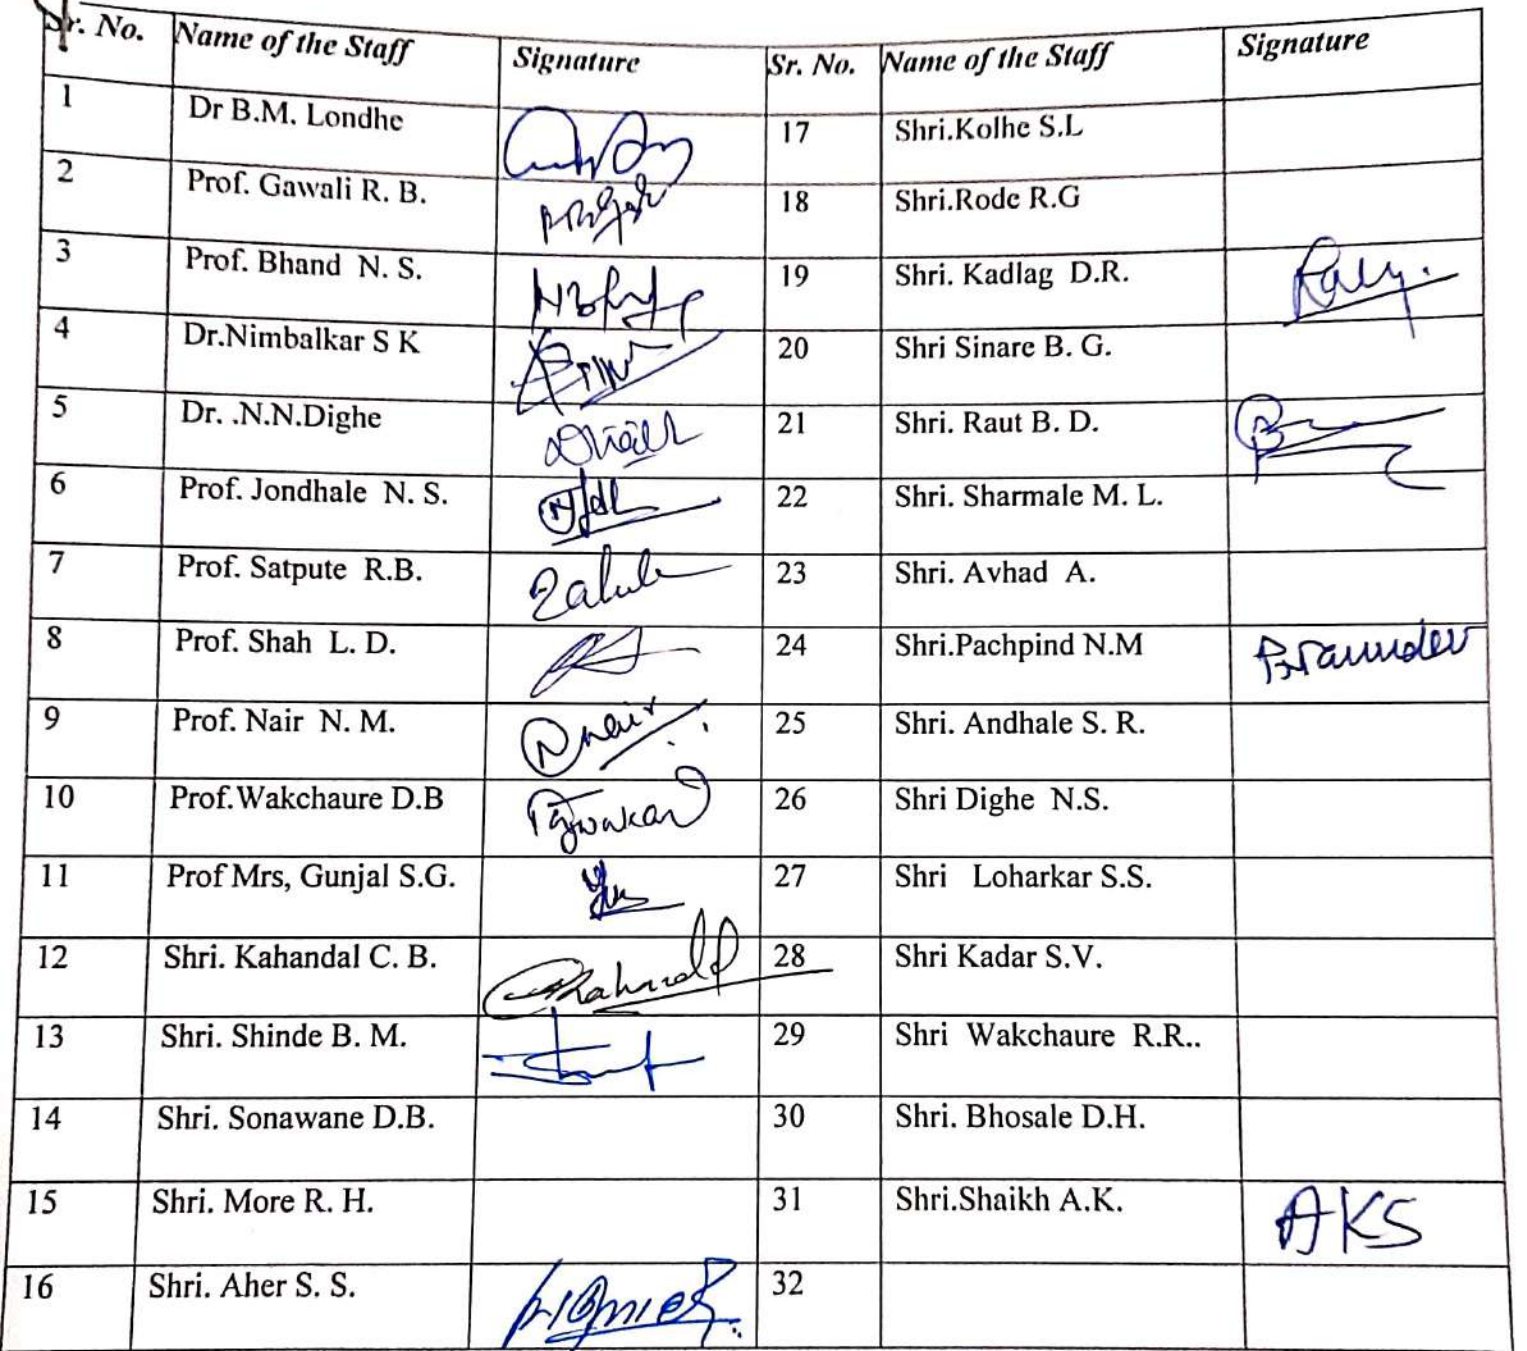 Sr. No. Name of the Staff Signature Sr. No. Name of the Staff Signature
1 Dr B.M. Londhe 17 Shri.Kolhe S.L
2 Prof. Gawali R. B. 18 Shri.Rode R.G
3 Prof. Bhand N. S. 19 Shri. Kadlag D.R.
4 Dr.Nimbalkar S K 20 Shri Sinare B. G.
5 Dr. .N.N.Dighe 21 Shri. Raut B. D.
6 Prof. Jondhale N. S. 22 Shri. Sharmale M. L.
7 Prof. Satpute R.B. 23 Shri. Avhad A.
8 Prof. Shah L. D. 24 Shri.Pachpind N.M
9 Prof. Nair N. M. 25 Shri. Andhale S. R.
10 Prof.Wakchaure D.B 26 Shri Dighe N.S.
11 Prof Mrs, Gunjal S.G. 27 Shri Loharkar S.S.
12 Shri. Kahandal C. B. 28 Shri Kadar S.V.
13 Shri. Shinde B. M. 29 Shri Wakchaure R.R..
14 Shri. Sonawane D.B. 30 Shri. Bhosale D.H.
15 Shri. More R. H. 31 Shri.Shaikh A.K. AKS
16 Shri. Aher S. S. 32